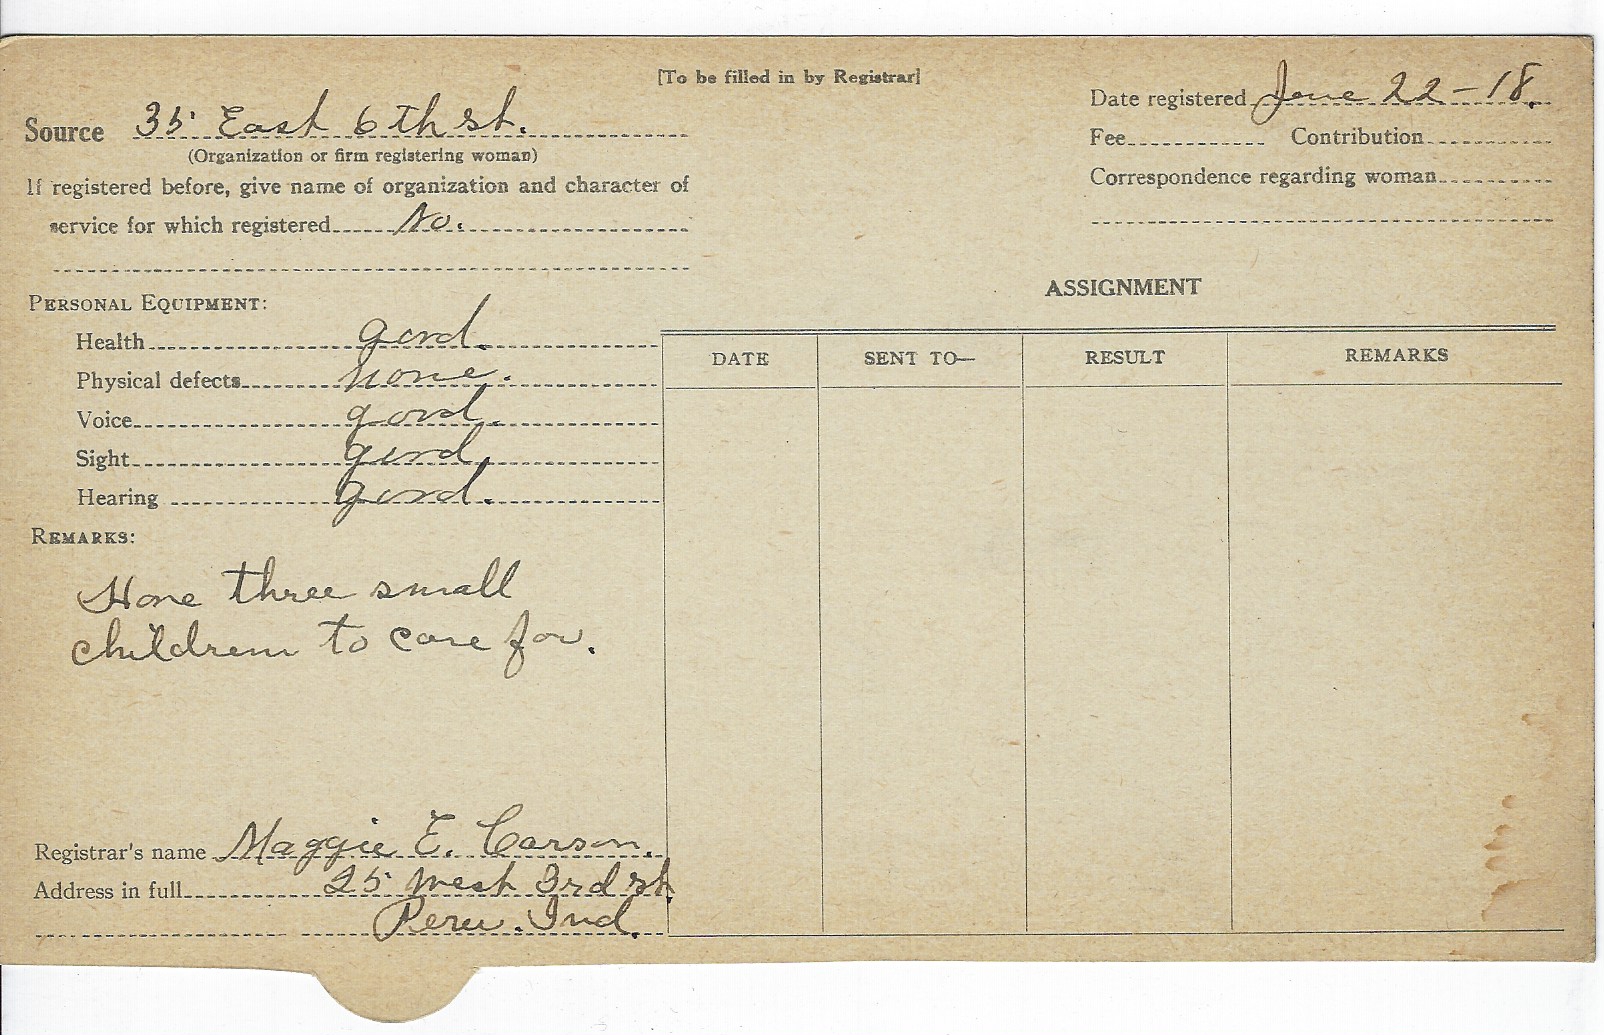 [To be filled in by Registrar]
Source 35 East 6th St.
(Organization or firm registering woman)
If registered before, give name of organization and character of
service for which registered No.
Date registered June 22-18.
Fee Contribution
Correspondence regarding woman
PERSONAL EQUIPMENT:
Health good.
Physical defects none.
Voice good.
Sight good.
Hearing good.
REMARKS:
Have three small
children to care for.
Registrar's name Maggie E. Carson.
Address in full 25 West 3rd St
Peru. Ind.
ASSIGNMENT
DATE SENT TO— RESULT REMARKS